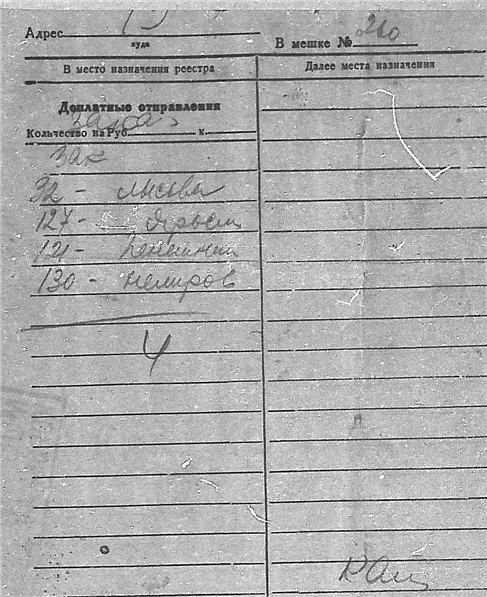 Адрес
куда
В мешке № 260
В место назначения реестра
Далее места назначения
Доплатные отправления
Количество на Руб. к.
Зак
32 - Лысьва
127 -
121 -
130 - Немиров
4